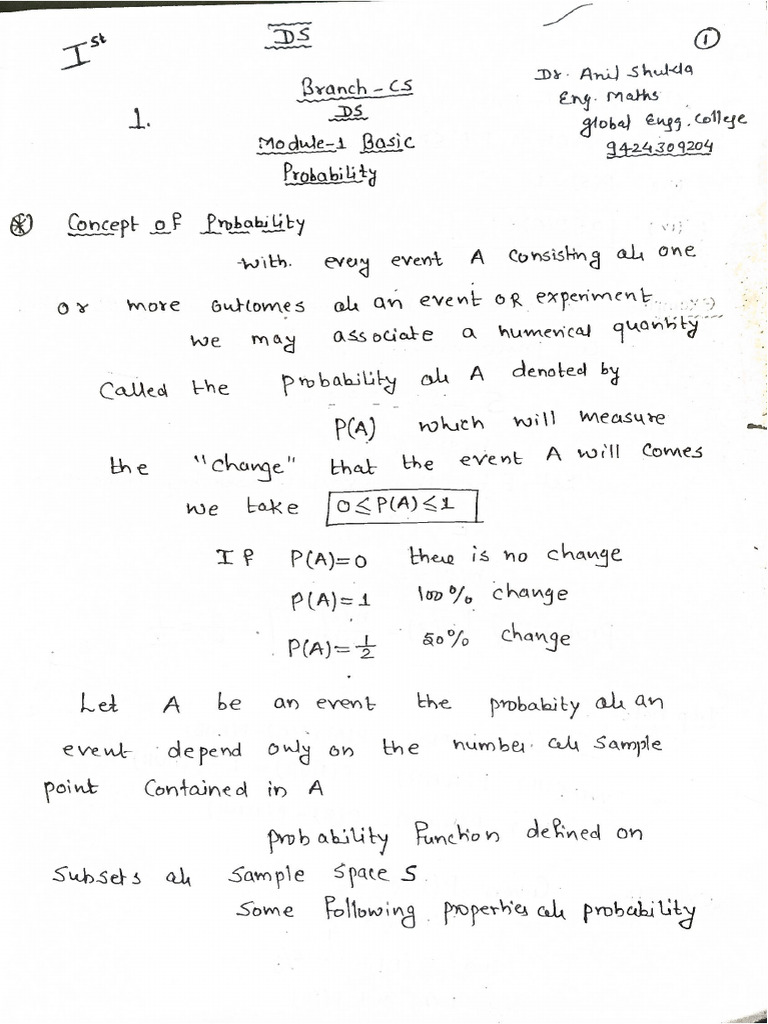 Ist
DS
1
Dr. Anil Shukla
Eng. Maths
global Engg. College
9424309204
Branch - CS
DS
1.
Module-1 Basic
Probability
* Concept of Probability
with every event A Consisting of one
or more outcomes of an event OR experiment
we may associate a numerical quantity
Called the probability of A denoted by
P(A) which will measure
the "change" that the event A will comes
we take 0≤P(A)≤1
If P(A)=0 there is no change
P(A)=1 100% change
P(A)=1/2 50% change
Let A be an event the probabity of an
event depend only on the number of sample
point Contained in A
probability Function defined on
Subsets of Sample Space S.
Some Following properties of probability